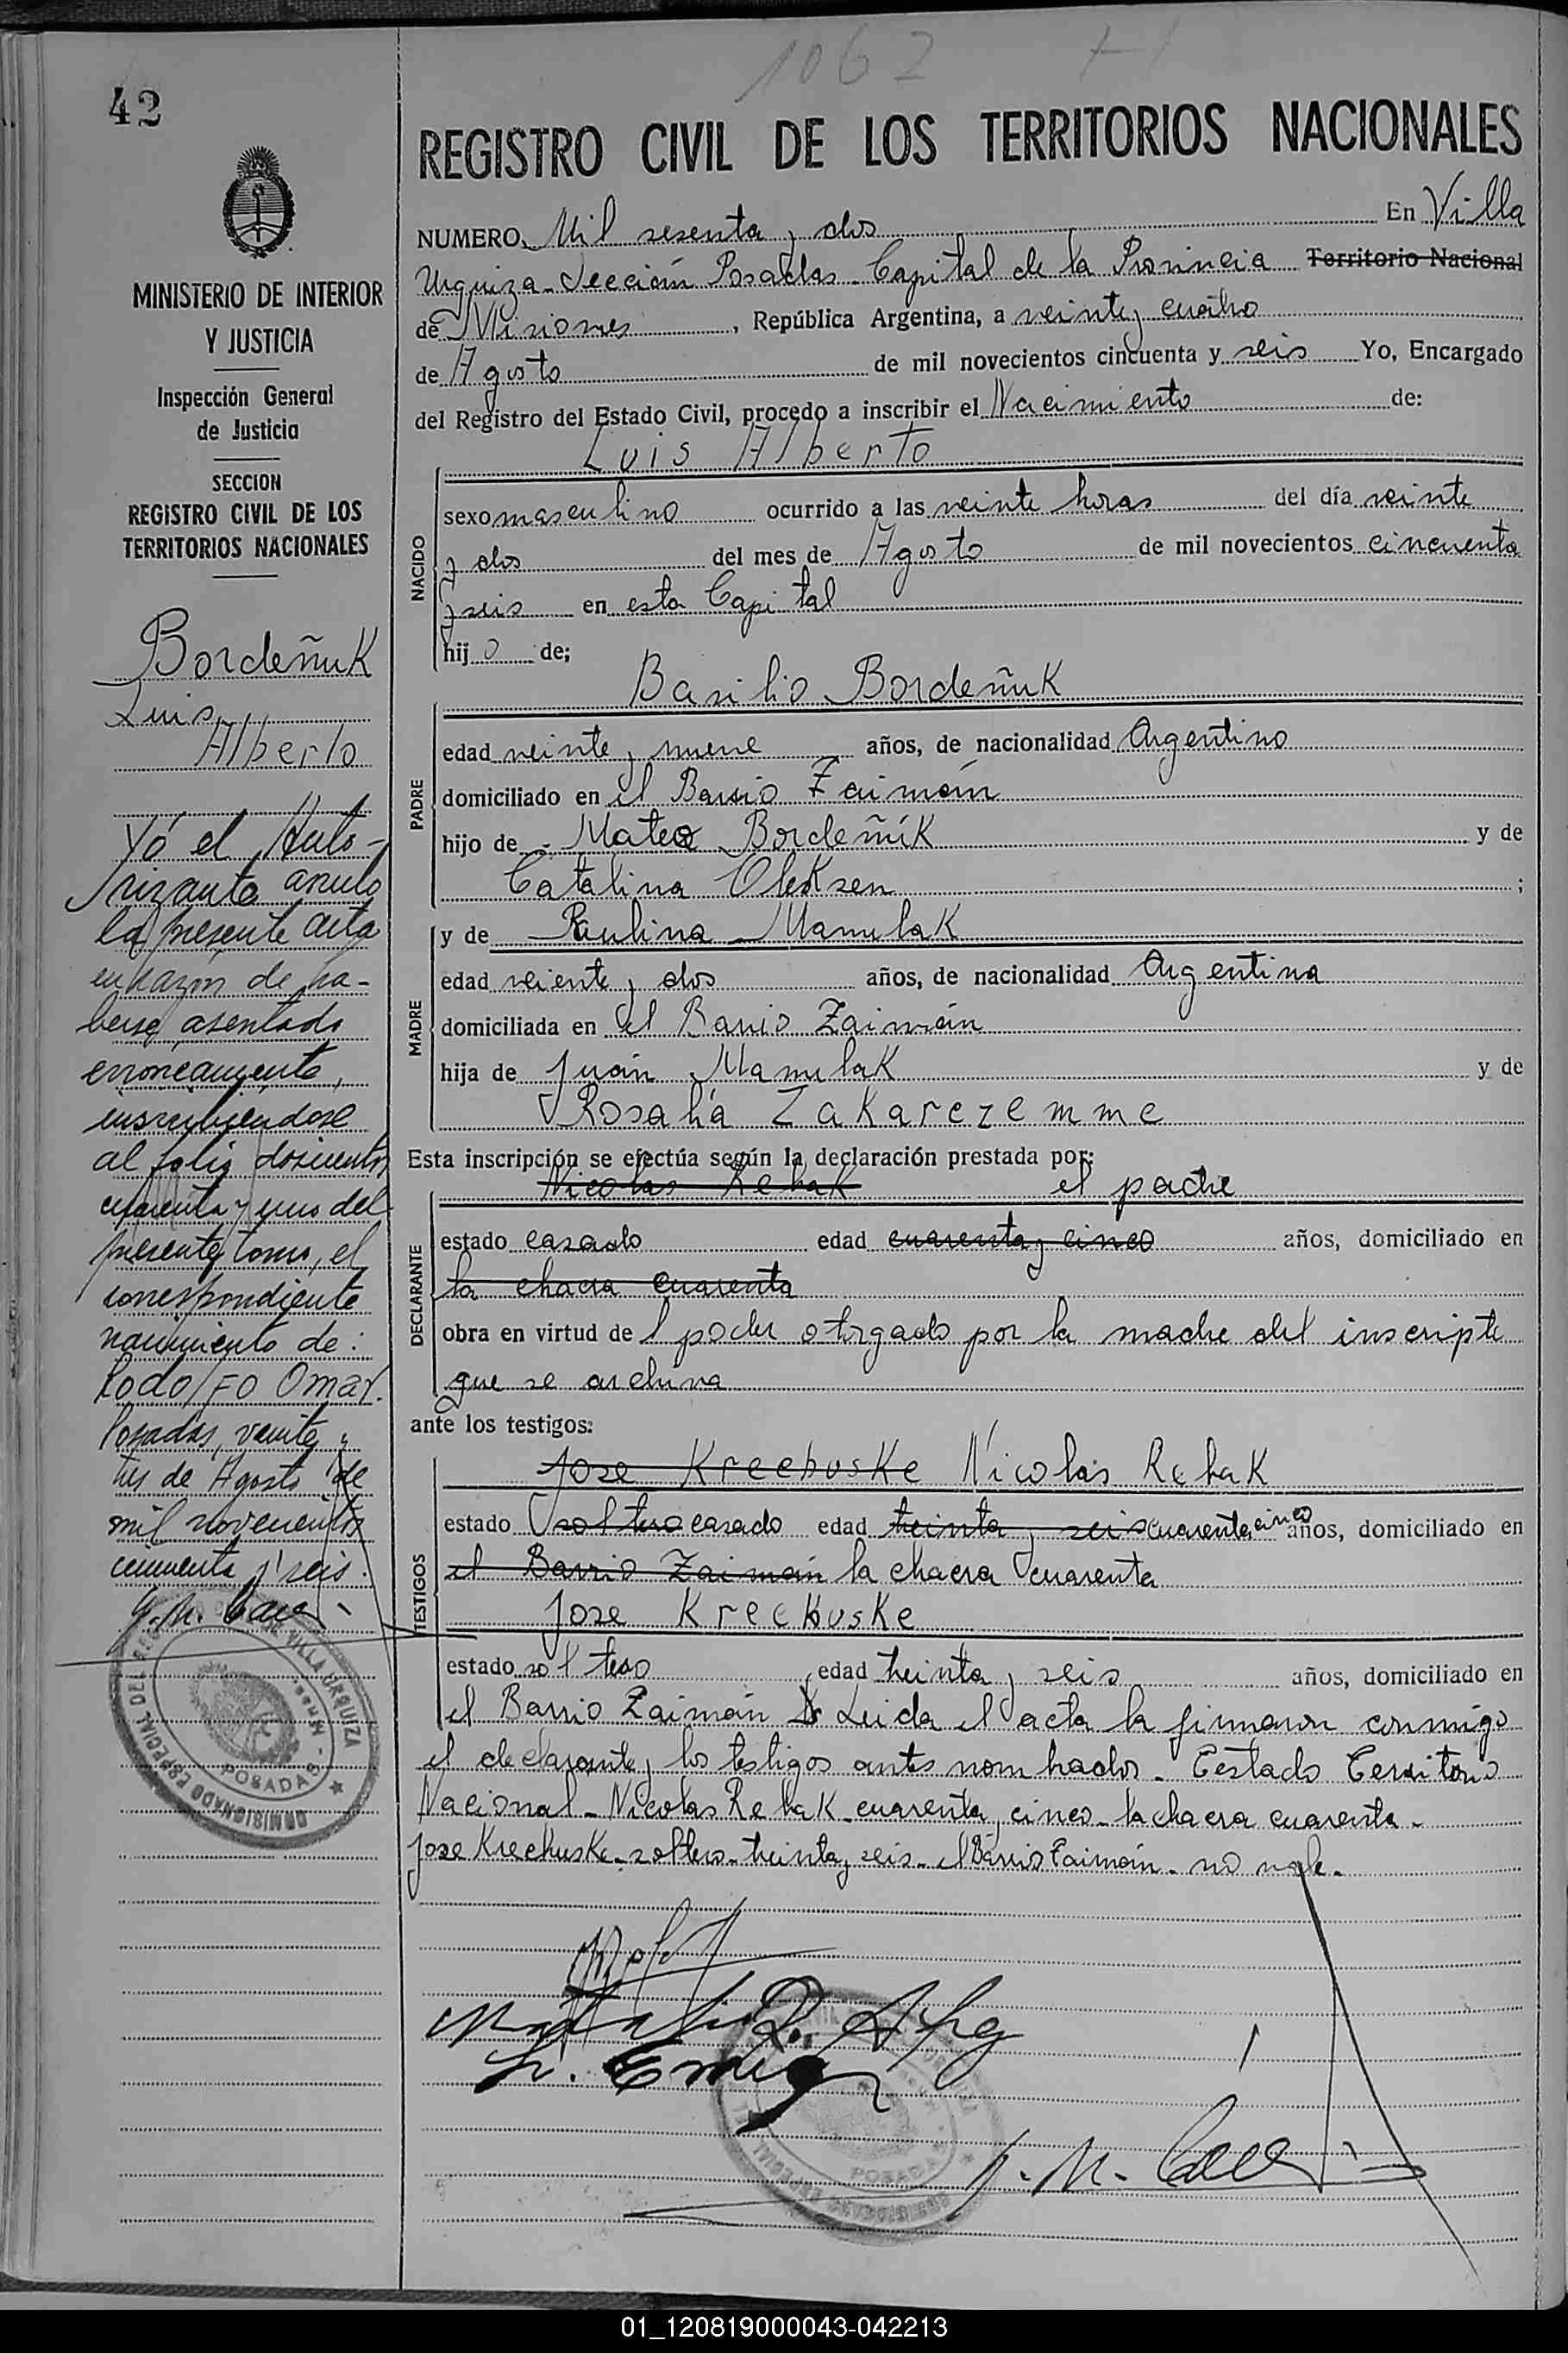 1062
42
REGISTRO CIVIL DE LOS TERRITORIOS NACIONALES
MINISTERIO DE INTERIOR
Y JUSTICIA
Inspección General
de Justicia
SECCION
REGISTRO CIVIL DE LOS
TERRITORIOS NACIONALES
Bordeñuk
Luis
Alberto
Yó el Auto-
rizante anulo
la presente acta
en razon de ha-
berse asentado
erroneamente,
inscribiendose
al folio doscientos
cuarenta y uno del
presente tomo, el
correspondiente
nacimiento de:
Rodolfo Omar.
Posadas, veinte y
tres de Agosto de
mil novecientos
cincuenta y seis.
NUMERO Mil sesenta y dos En Villa
Urquiza - Sección Posadas - Capital de la Provincia Territorio Nacional
de Misiones, República Argentina, a veinte y cuatro
de Agosto de mil novecientos cincuenta y seis Yo, Encargado
del Registro del Estado Civil, procedo a inscribir el Nacimiento de:
Luis Alberto
NACIDO
sexo masculino ocurrido a las veinte horas del día veinte
y dos del mes de Agosto de mil novecientos cincuenta
y seis en esta Capital
hijo de;
Basilio Bordeñuk
PADRE
edad veinte y nueve años, de nacionalidad Argentino
domiciliado en el Barrio Zaimán
hijo de - Mateo Bordeñik y de
Catalina Oleksen ;
MADRE
y de Paulina Mamulak
edad veiente y dos años, de nacionalidad Argentina
domiciliada en el Barrio Zaimán
hija de Juán Mamulak y de
Rosalía Zakarezemme
Esta inscripción se efectúa según la declaración prestada por:
Nicolas Rebak el padre
DECLARANTE
estado casado edad cuarenta y cinco años, domiciliado en
la chacra cuarenta
obra en virtud del poder otorgado por la madre del inscripto
que se archiva
ante los testigos:
Jose Krechuske Nicolás Rebak
TESTIGOS
estado soltero casado edad treinta y seis cuarenta cinco años, domiciliado en
el Barrio Zaimán la chacra cuarenta
Jose Krechuske
estado soltero edad treinta y seis años, domiciliado en
el Barrio Zaimán Leida el acta la firmaron conmigo
el declarante y los testigos antes nombrados - Testado Territorio
Nacional - Nicolas Rebak - cuarenta y cinco - la chacra cuarenta -
Jose Krechuske - soltero - treinta y seis - el Barrio Zaimán - no vale.
VILLA URQUIZA
POSADAS
POSADAS
01_120819000043-042213